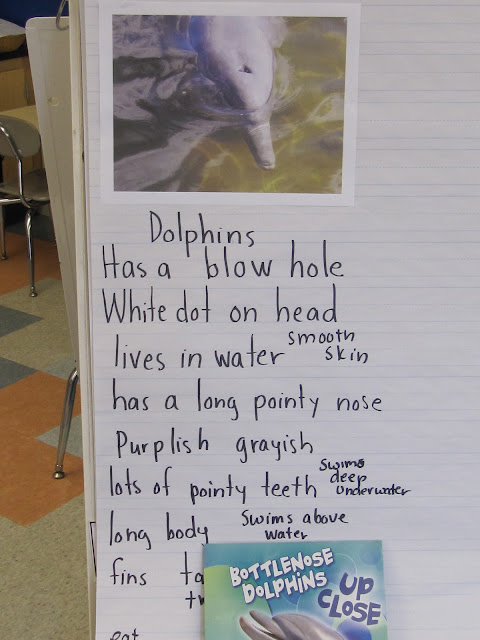 Dolphins
Has a blow hole
White dot on head
lives in water smooth
skin
has a long pointy nose
Purplish grayish
lots of pointy teeth Swims
deep
underwater
long body Swims above
water
fins
BOTTLENOSE
DOLPHINS UP
CLOSE
eat